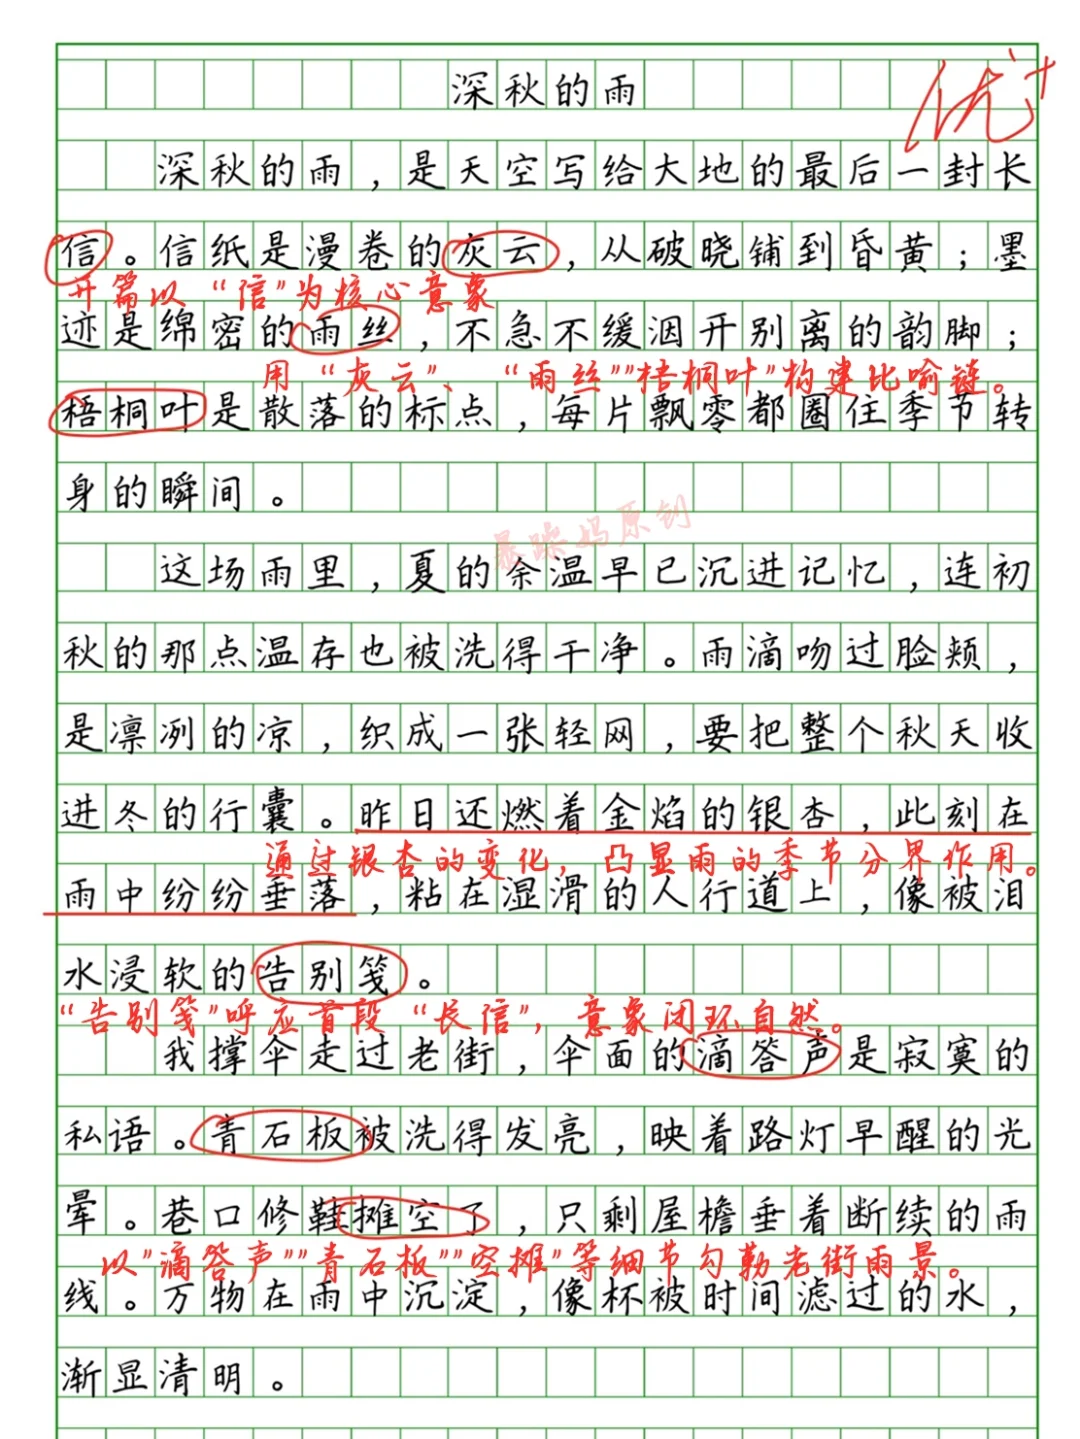 深秋的雨
优+
深秋的雨，是天空写给大地的最后一封长
信。信纸是漫卷的灰云，从破晓铺到昏黄；墨
开篇以“信”为核心意象
迹是绵密的雨丝，不急不缓洇开别离的韵脚；
用“灰云”、“雨丝”“梧桐叶”构建比喻链。
梧桐叶是散落的标点，每片飘零都圈住季节转
身的瞬间。
暴躁妈原创
这场雨里，夏的余温早已沉进记忆，连初
秋的那点温存也被洗得干净。雨滴吻过脸颊，
是凛冽的凉，织成一张轻网，要把整个秋天收
进冬的行囊。昨日还燃着金焰的银杏，此刻在
通过银杏的变化，凸显雨的季节分界作用。
雨中纷纷垂落，粘在湿滑的人行道上，像被泪
水浸软的告别笺。
“告别笺”呼应首段“长信”，意象闭环自然。
我撑伞走过老街，伞面的滴答声是寂寞的
私语。青石板被洗得发亮，映着路灯早醒的光
晕。巷口修鞋摊空了，只剩屋檐垂着断续的雨
以“滴答声”“青石板”“空摊”等细节勾勒老街雨景。
线。万物在雨中沉淀，像杯被时间滤过的水，
渐显清明。